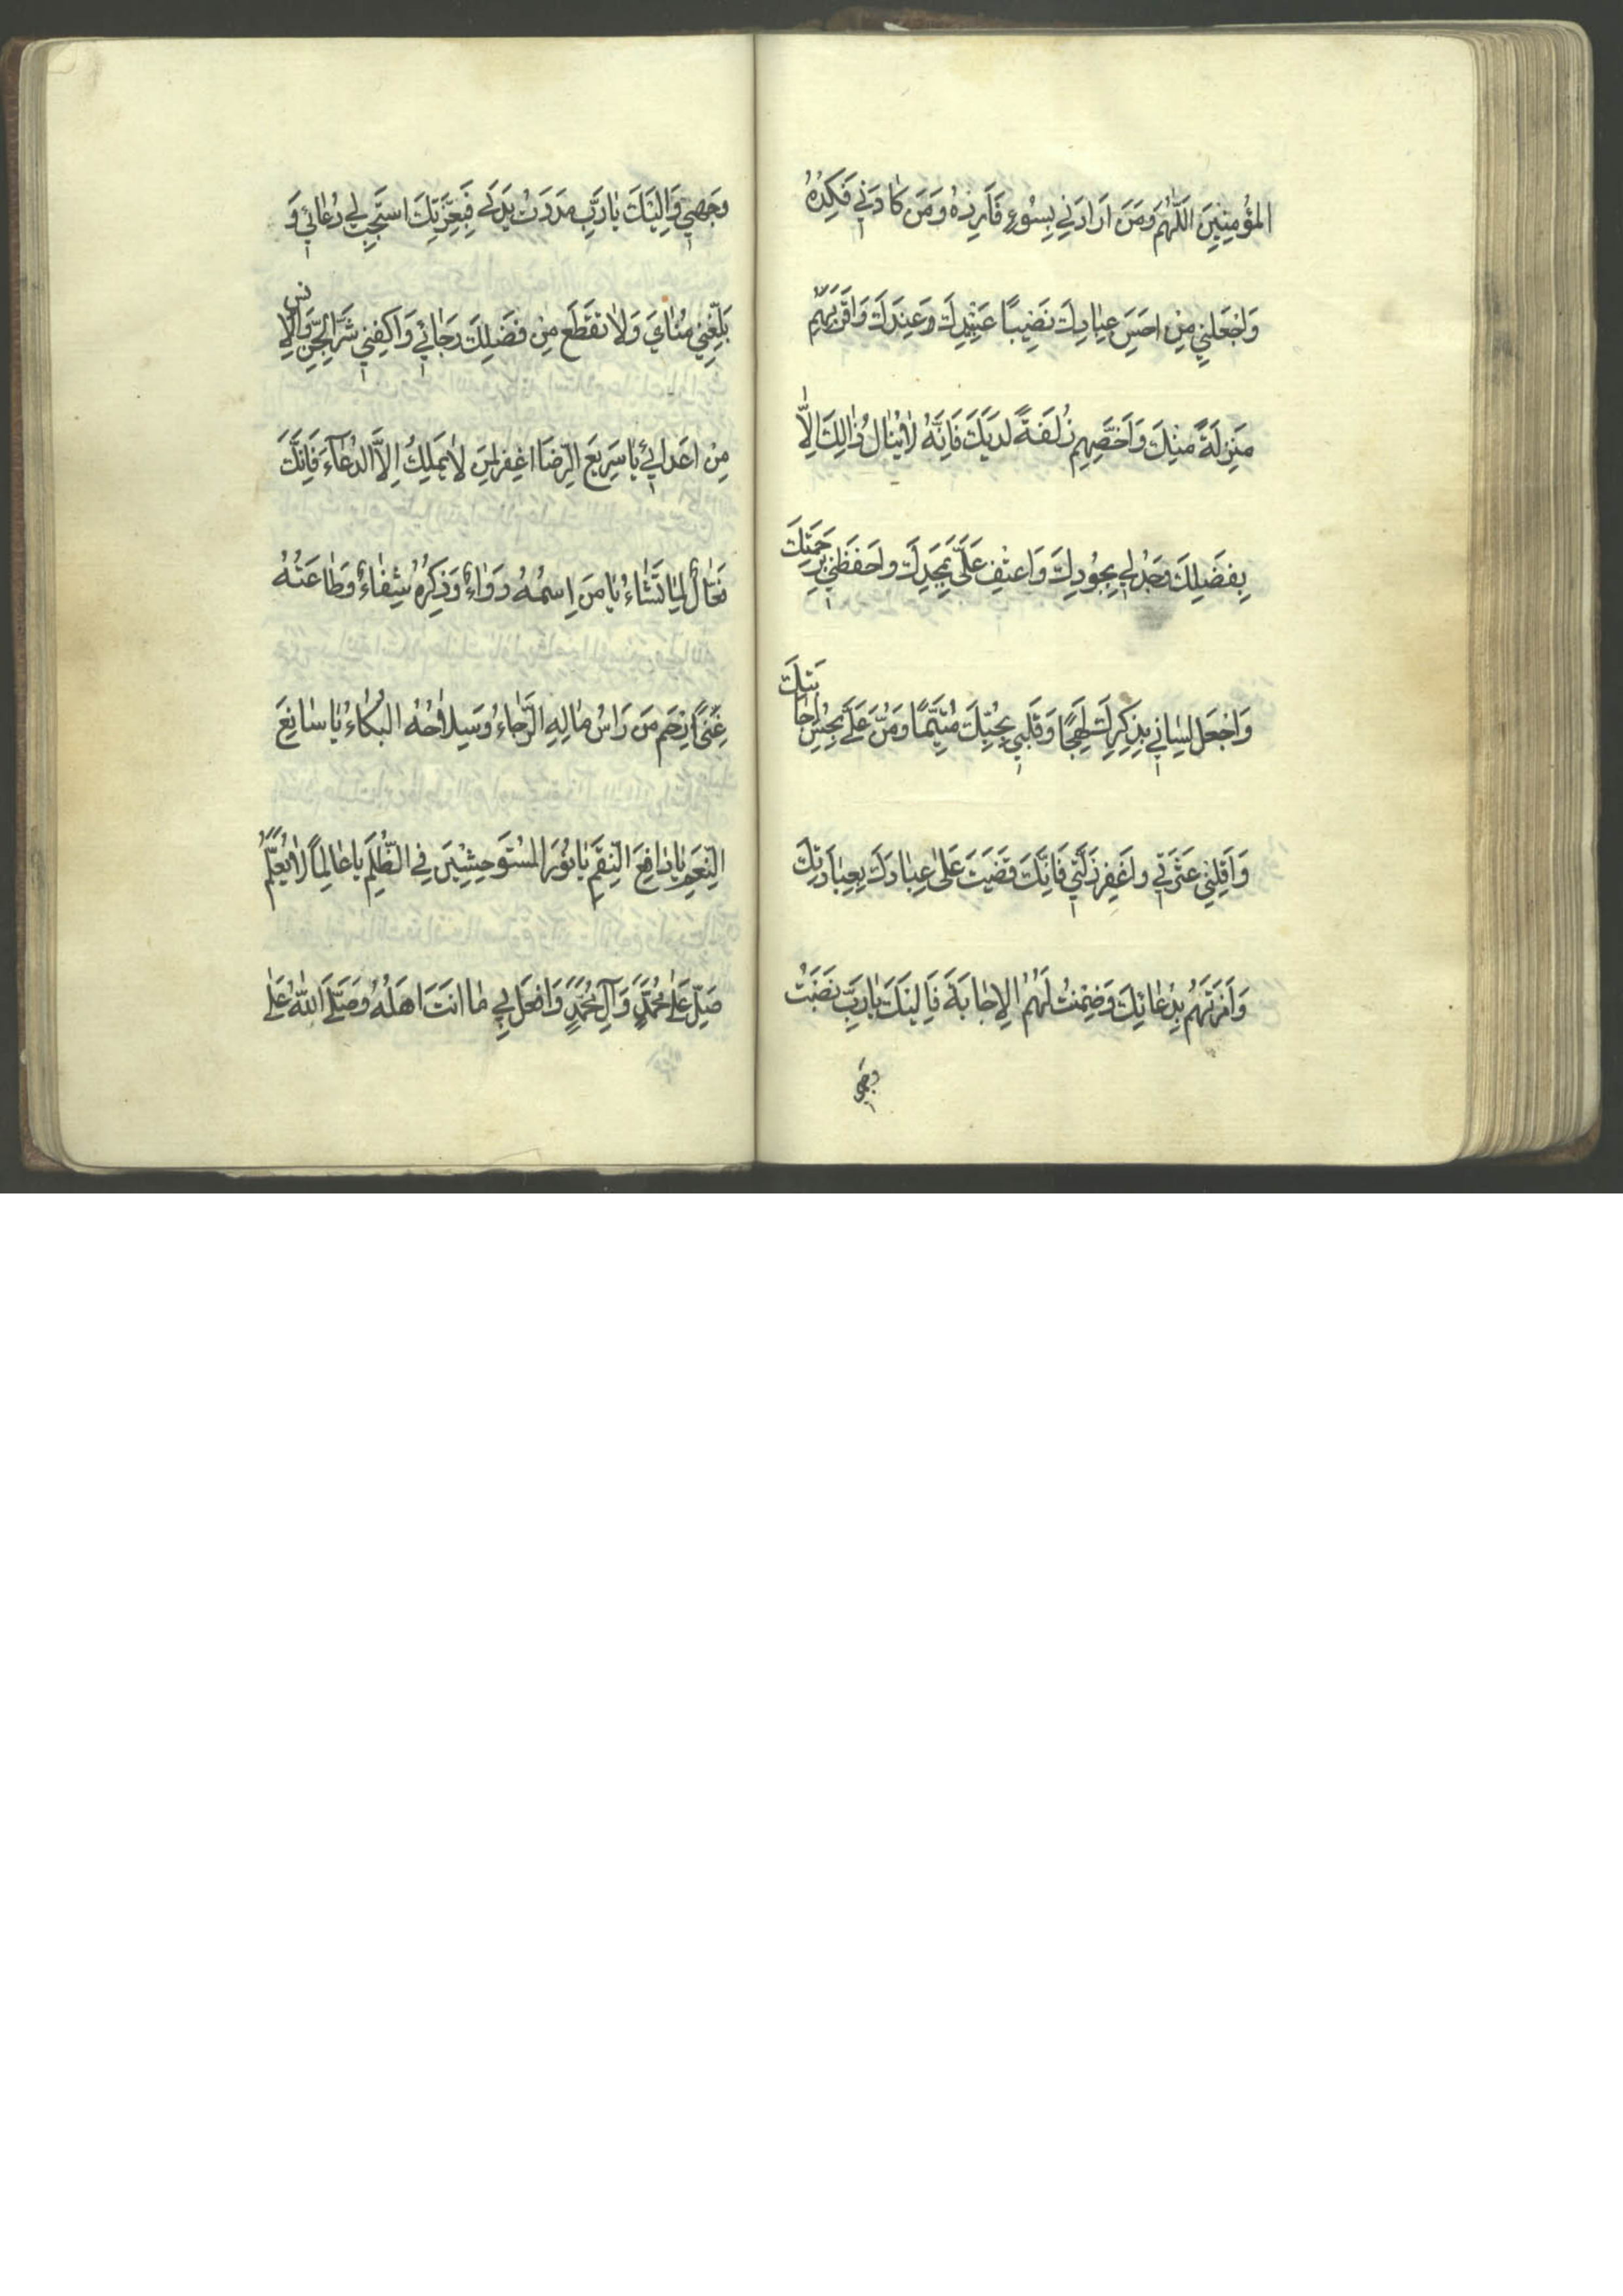 المُؤْمِنِينَ اَللّٰهُمَّ وَمَنَ اَرَادَنِي بِسُوءٍ فَاَرِدْهُ وَمَنَ كٰادَنِي فَكِدْهُ
وَاجْعَلنِي مِنْ احَسَنِ عِبٰادِكَ نَصِيباً عِنْدِكَ وَاَقْرَبِهِمْ
مَنِزلَةً مِنْكَ وَاَخَصِّهِم زُلفَةً لدَيَكَ فَاِنَّهُ لاٰيُنٰالُ ذٰالِكَ اِلاّٰ
بِفَضلِكَ وَجُدْ لِي بِجُودِكَ وَاعطِف عَلَيَّ بِمَجَدِكَ واحَفَظنِي بِرَحمَتِكَ
وَاجْعَل لِسٰانِي بِذِكرِكَ لَهِجًا وَقَلبِي بِحُبِّكَ مُتَيَّمًا وَمُنَّ عَلَيَّ بِحُسنِ اِجٰابَتِكَ
وَاَقِلنِي عَثرَتِي واغَفِر زَلَّتِي فَاِنَّكَ قَضَيَتَ عَلىٰ عِبٰادِكَ بِعِبٰادَتِكَ
وَاَمَرتَهُم بِدُعٰائِكَ وَضَمِنْتُ لَهُمُ الاِجٰابَةَ فَاِليَكَ يٰارَبِّ نَصَبْتُ
وجهي
وَجَهِي وَاِليَكَ يٰارَبِّ مَدَدَتُ يَدَيَ فَبِعِزَّتِكَ اسْتَجِب لِي دُعٰائِي وَ
بَلِّغنِي مُنٰايَ وَلاٰتَقَطَع مِنْ فَضَلِكَ رَجٰائِي وَاكفِنِي شَرَّ الجِنِّ وَالاِنسِ
مِنْ اعَدٰائِي يٰاسَرِيعَ الرِّضَا اغِفر لِمَن لاٰيَملِكُ اِلاَّ الدُعٰاءَ فَاِنَّكَ
فَعّٰالٌ لِمٰا تَشٰاءُ يٰا مَن اِسمُهُ دَوٰاءٌ وَذِكرُهُ شِفٰاءٌ وَطٰاعَتُهُ
غِنىً اِرْحَم مَن رَاسُ مٰالِهِ الرَّجٰاءُ وَسِلاٰحُهُ البُكٰاءُ يٰا سٰابِغَ
النِّعَمِ يٰا دٰافِعَ النِّقَمِ يٰا نُورَ المُسْتَوحِشِينَ فِي الظُّلَمِ يٰا عٰالِماً لاٰيُعَلَّمُ
صَلِّ عَلىٰ مُحَمَّدٍ وَآلِ مُحَمَّدٍ وَافعَل بِي مٰا انتَ اهَلُهُ وَصَلَّى اللّٰهُ عَلىٰ